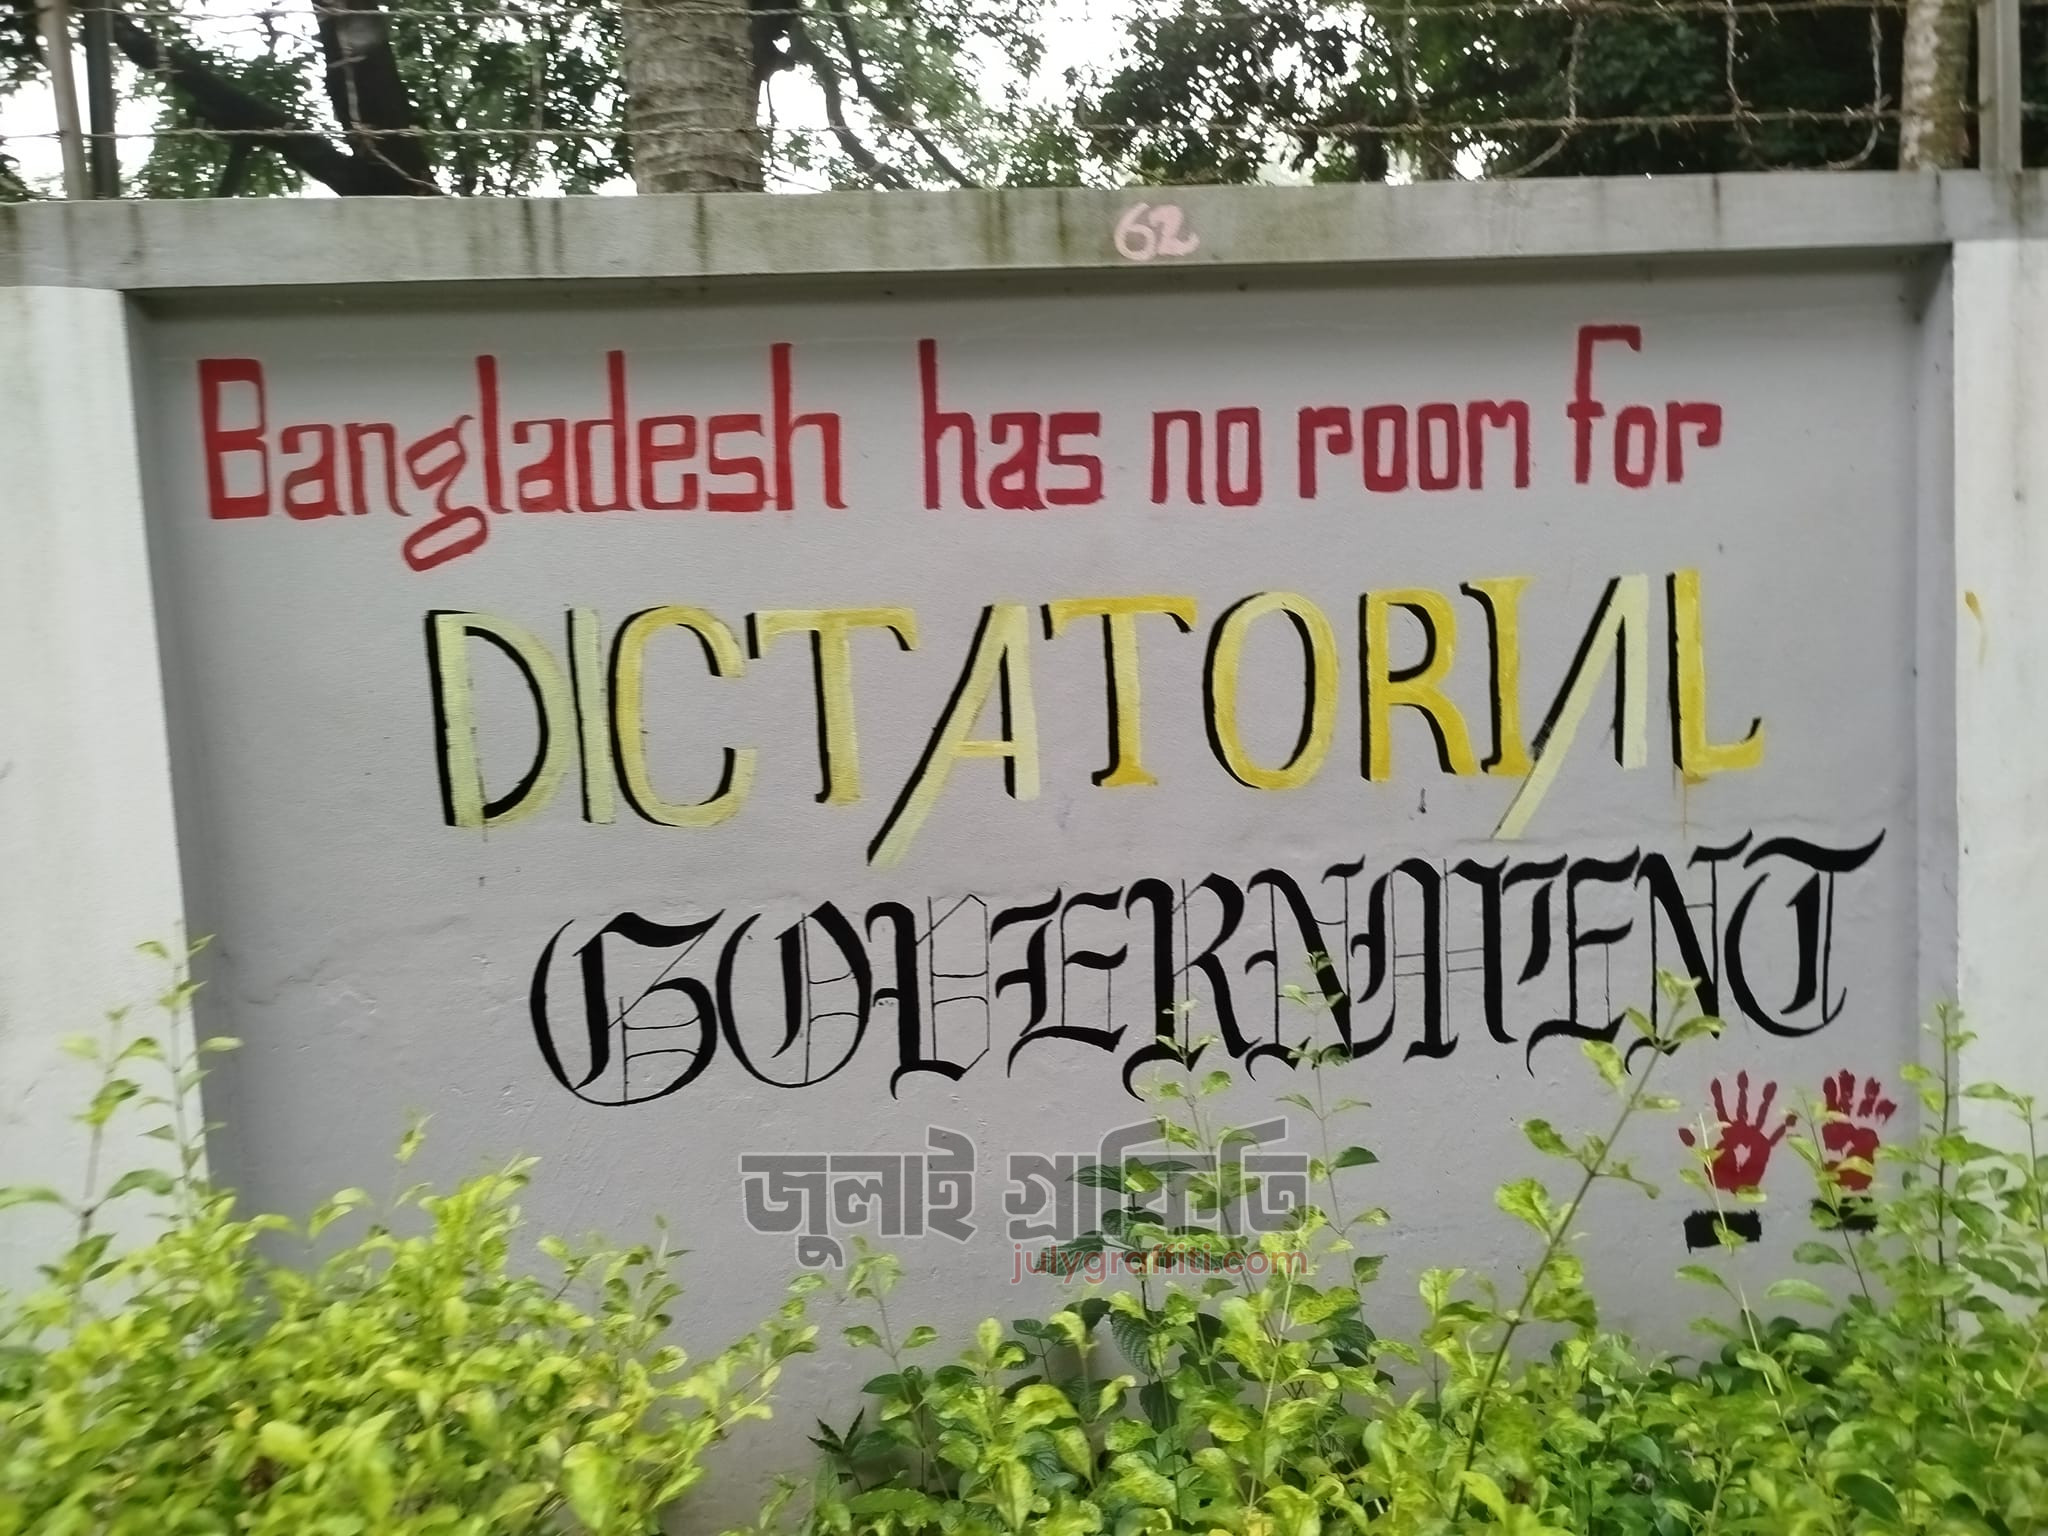 62
Bangladesh has no room for
DICTATORIAL
GOVERNMENT
জুলাই গ্রাফিতি
julygraffiti.com